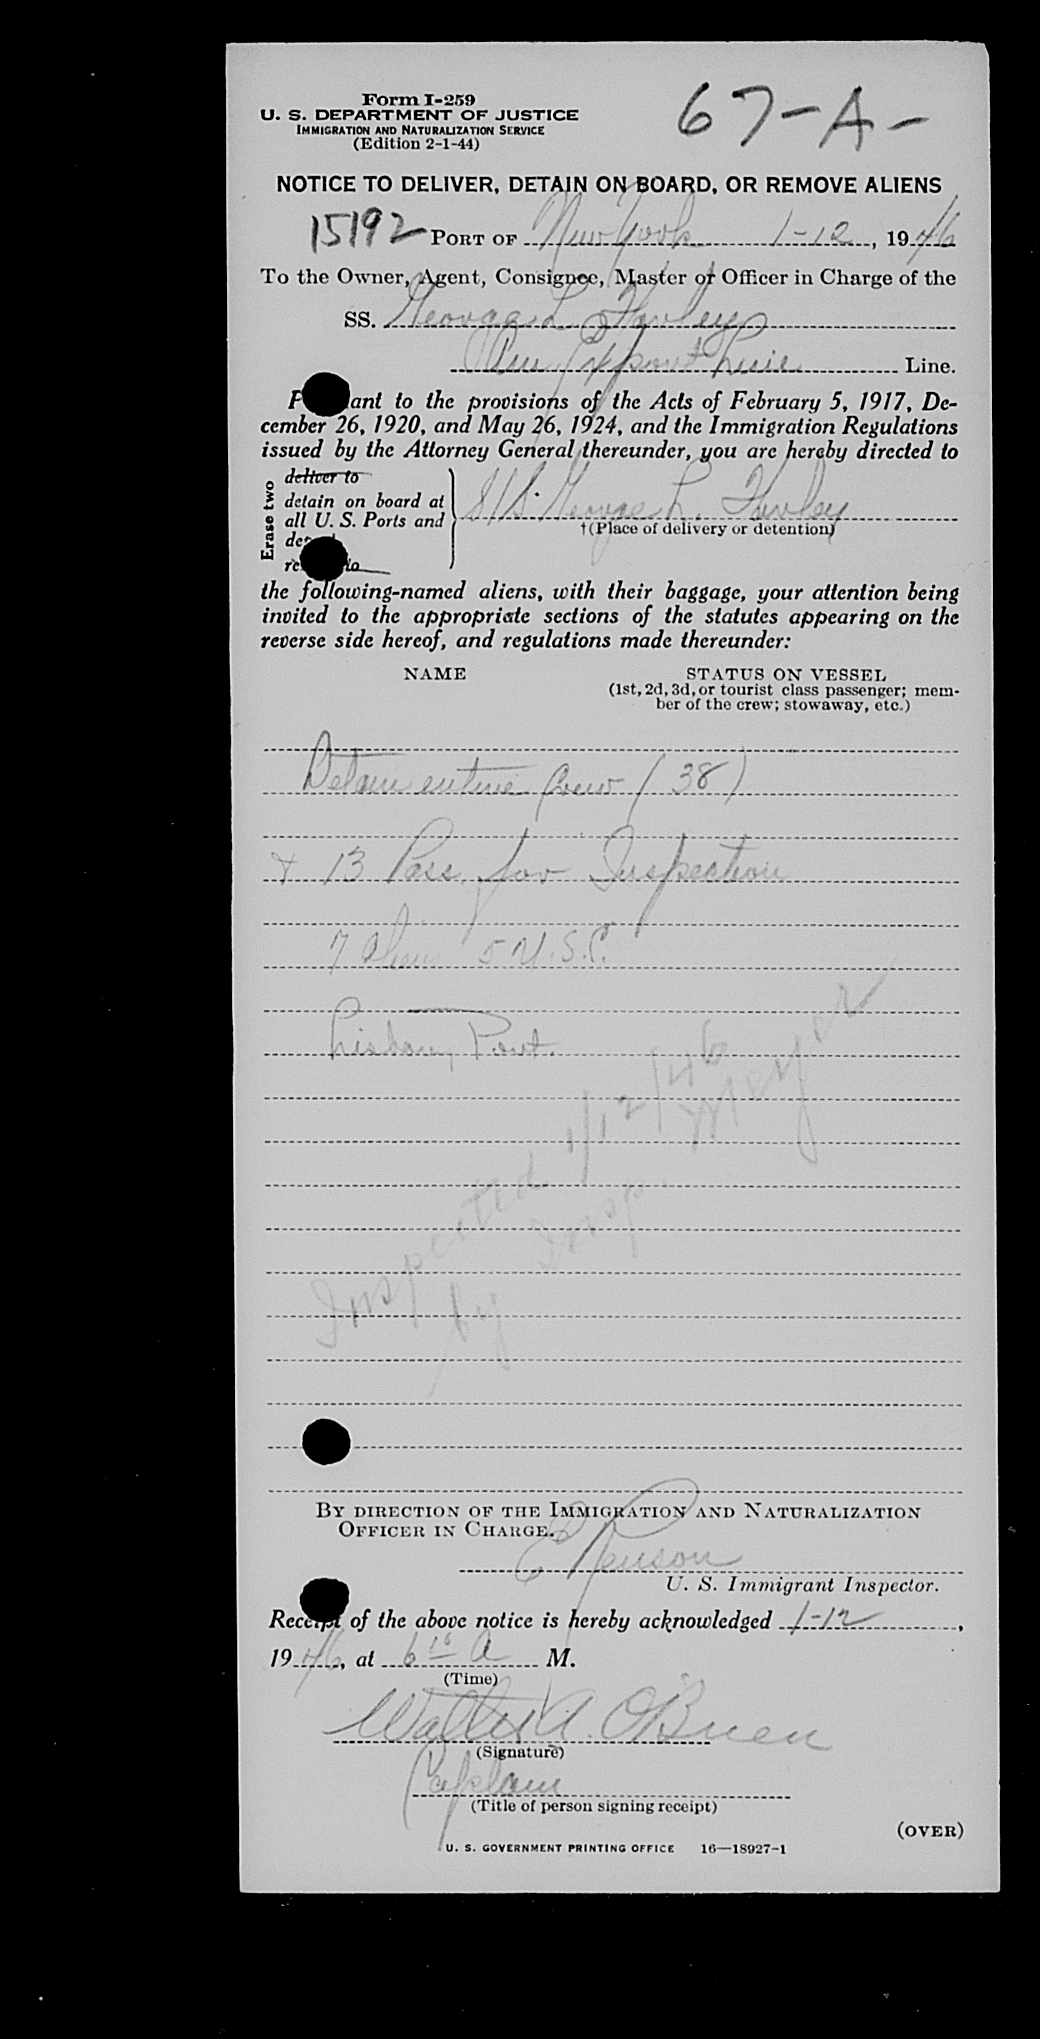 Form I-259
U. S. DEPARTMENT OF JUSTICE
IMMIGRATION AND NATURALIZATION SERVICE
(Edition 2-1-44)
67-A-
NOTICE TO DELIVER, DETAIN ON BOARD, OR REMOVE ALIENS
15192 PORT OF New York 1-12, 1946
To the Owner, Agent, Consignee, Master or Officer in Charge of the
SS. George L. Farley
Am Export Line Line.
P ant to the provisions of the Acts of February 5, 1917, De-
cember 26, 1920, and May 26, 1924, and the Immigration Regulations
issued by the Attorney General thereunder, you are hereby directed to
Erase two
deliver to
detain on board at
all U. S. Ports and
S/S George L. Farley
†(Place of delivery or detention)
the following-named aliens, with their baggage, your attention being
invited to the appropriate sections of the statutes appearing on the
reverse side hereof, and regulations made thereunder:
NAME
STATUS ON VESSEL
(1st, 2d, 3d, or tourist class passenger; mem-
ber of the crew; stowaway, etc.)
Detain entire Crew (38)
+ 13 Pass. for Inspection
7 Alien 5 U.S.C.
Lisbon, Port.
Inspected 1/12/46
by Insp. Meyer
BY DIRECTION OF THE IMMIGRATION AND NATURALIZATION
OFFICER IN CHARGE.
U. S. Immigrant Inspector.
Receipt of the above notice is hereby acknowledged 1-12,
1946, at 6 15 A M.
(Time)
Walter A. O'Brien
(Signature)
Captain
(Title of person signing receipt)
(OVER)
U. S. GOVERNMENT PRINTING OFFICE 16—18927-1